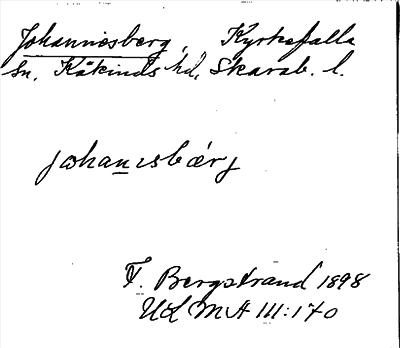 Johannesberg, Kyrkefalla
sn, Kåkinds hd, Skarab. l.
johanısbærj
F. Bergstrand 1898
ULMA 111:170